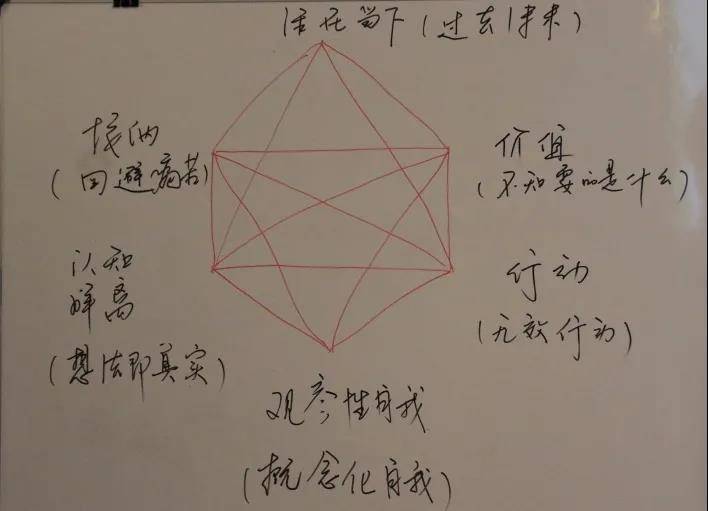 活在当下(过去/未来)
接纳
(回避痛苦)
价值
(不知要的是什么)
认知
解离
(想法即真实)
行动
(无效行动)
观察性自我
(概念化自我)